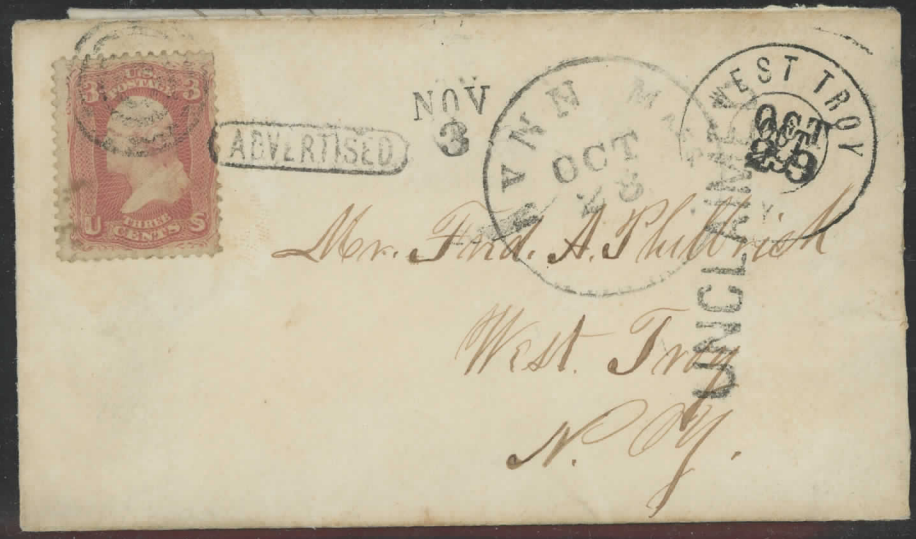 3 U.S. POSTAGE 3
U THREE CENTS S
ADVERTISED.
NOV
3
OCT
28
WEST TROY
OCT
UNCLAIMED
Mr. Ferd. A. Philbrick
West. Troy
N. Y.